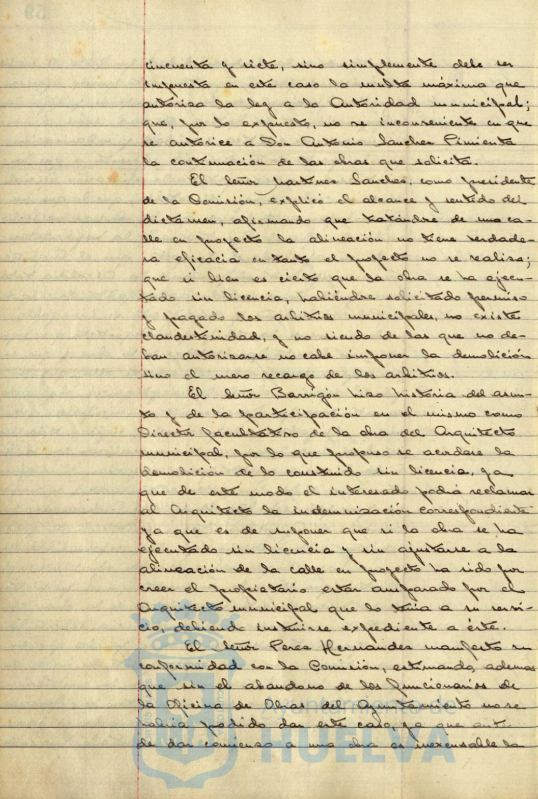 cincuenta y siete, sino simplemente debe ser
impuesta en este caso la multa máxima que
autoriza la ley a la Autoridad municipal;
que, por lo expuesto, no ve inconveniente en que
se autorice a Don Antonio Sanchez Pimienta
la continuación de las obras que solicita.
El Señor Martinez Sanchez, como presidente
de la Comisión, explicó el alcance y sentido del
dictamen, afirmando que tratándose de una ca-
lle en proyecto la alineación no tiene verdade-
ra eficacia en tanto el proyecto no se realiza;
que si bien es cierto que la obra se ha ejecu-
tado sin licencia, habiéndose solicitado permiso
y pagado los arbitrios municipales, no existe
clandestinidad, y no siendo de las que no de-
ban autorizarse no cabe imponer la demolición
sino el mero recargo de los arbitrios.
El Señor Barrigón hizo historia del asun-
to y de la participación en el mismo como
Director facultativo de la obra del Arquitecto
municipal, por lo que propuso se acordase la
demolición de lo construido sin licencia, ya
que de este modo el interesado podrá reclamar
al Arquitecto la indemnización correspondiente
ya que es de suponer que si la obra se ha
ejecutado sin licencia y sin ajustarse a la
alineación de la calle en proyecto ha sido por
creer el propietario estar amparado por el
Arquitecto municipal que lo tenia a su servi-
cio, debiendo instruirse expediente a éste.
El Señor Perez Hernandez manifestó su
conformidad con la Comisión, estimando, ademas
que sin el abandono de los funcionarios de
la Oficina de Obras del Ayuntamiento no se
habria podido dar este caso, ya que
de dar comienzo a una obra es inexcusable la
Ayuntamiento
HUELVA